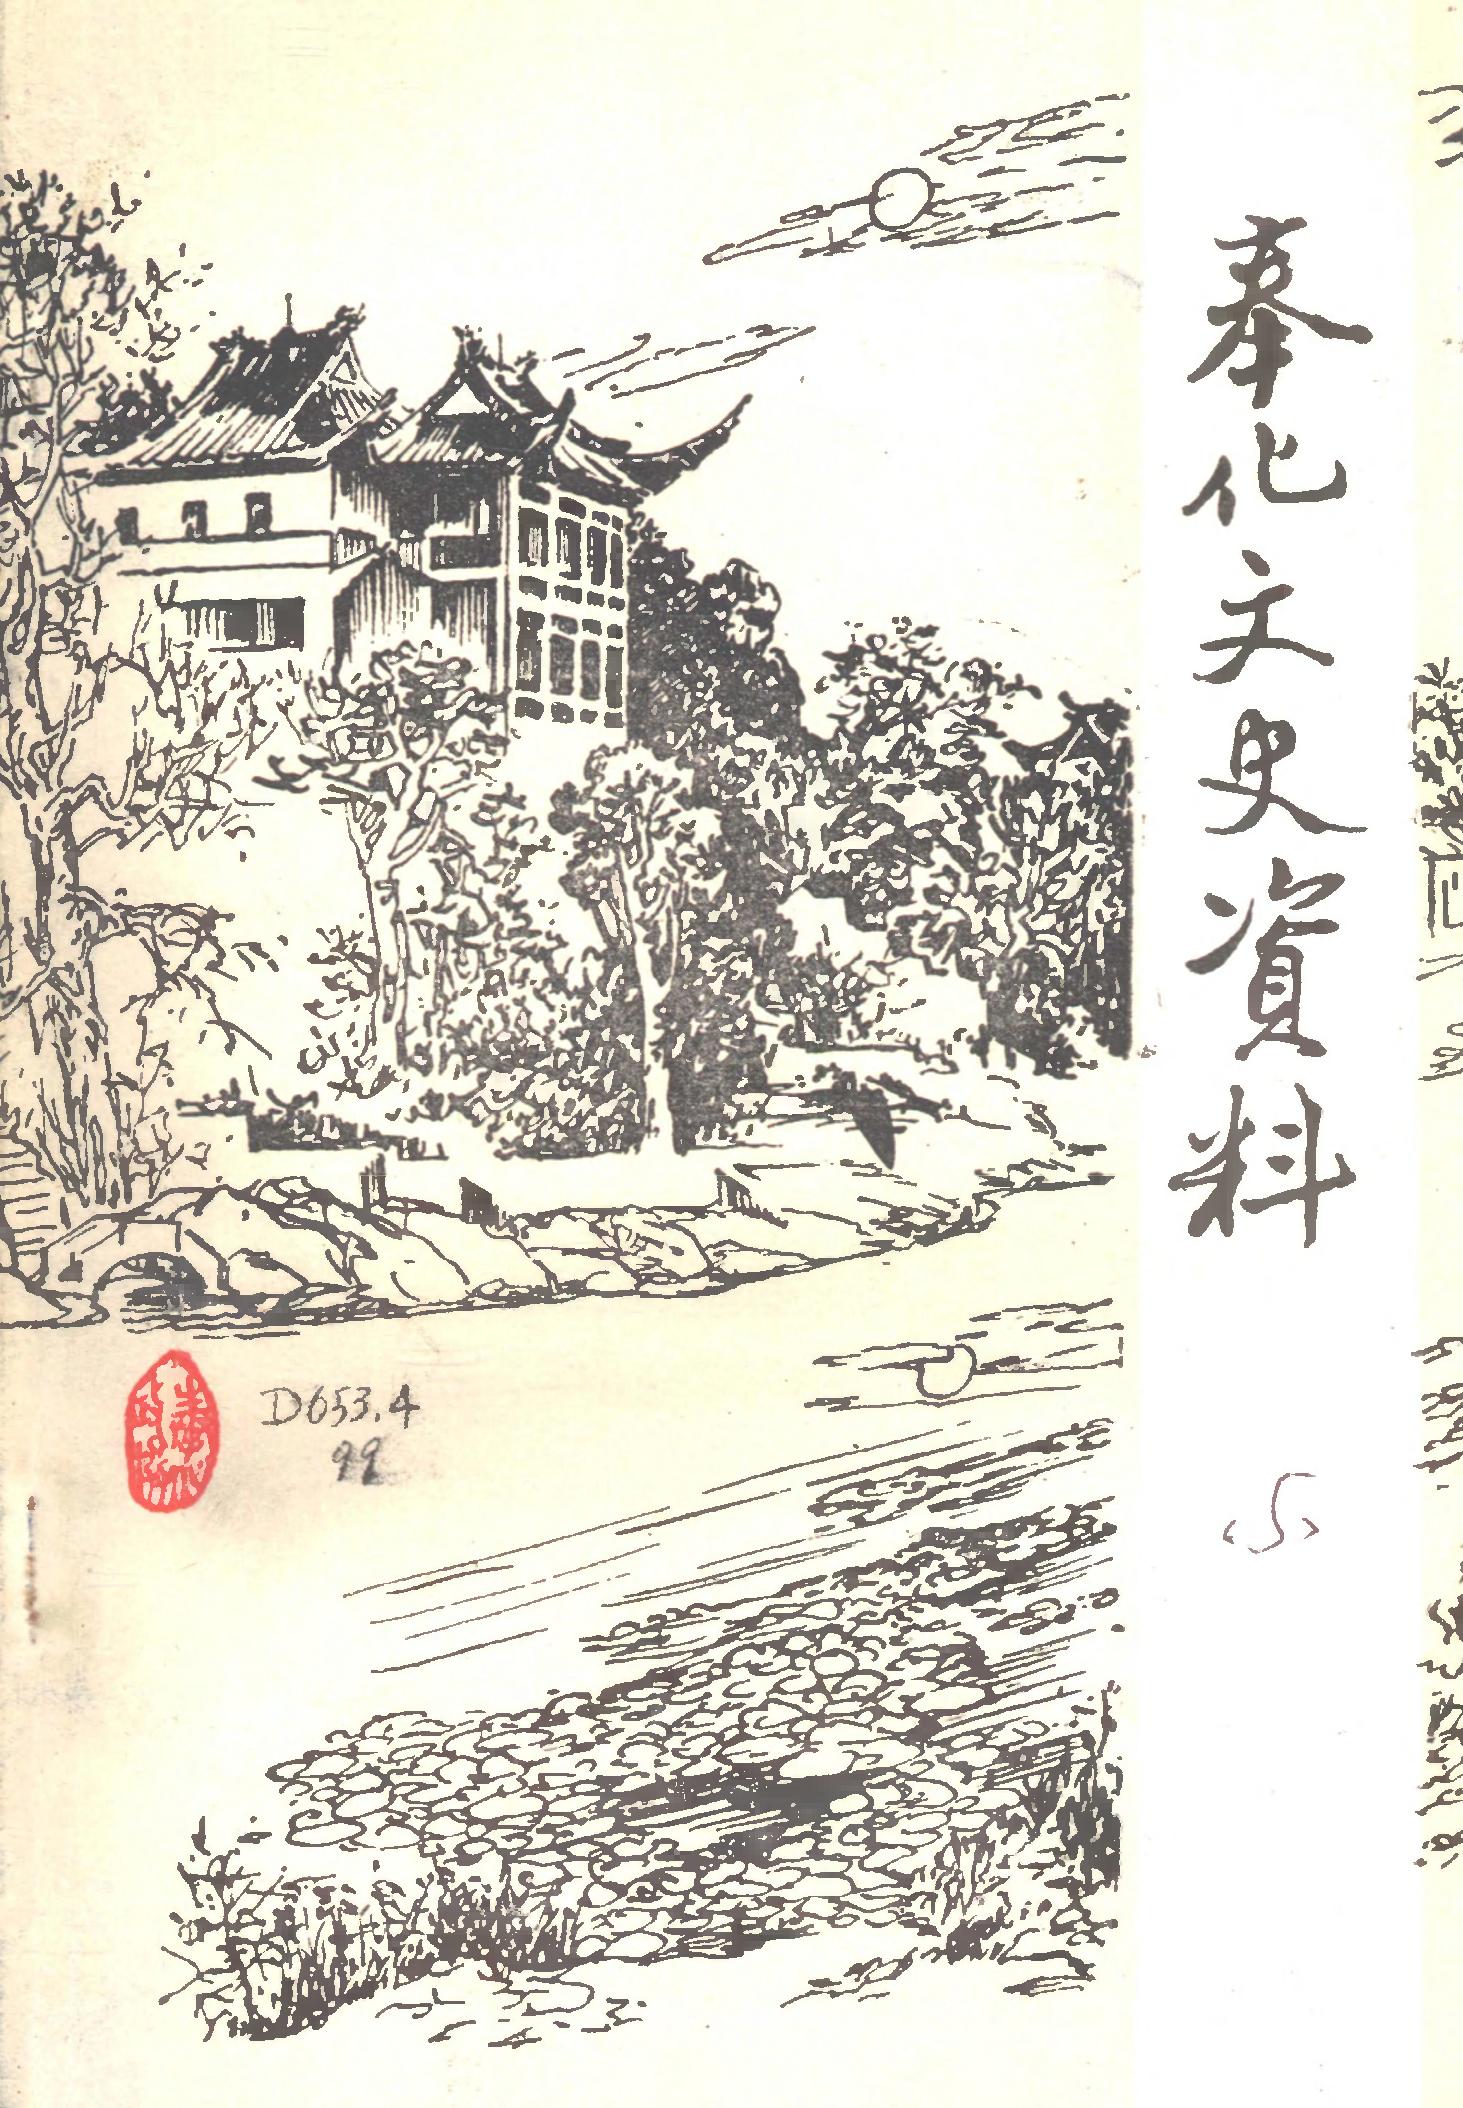 奉化文史資料
《5》
D653.4
99